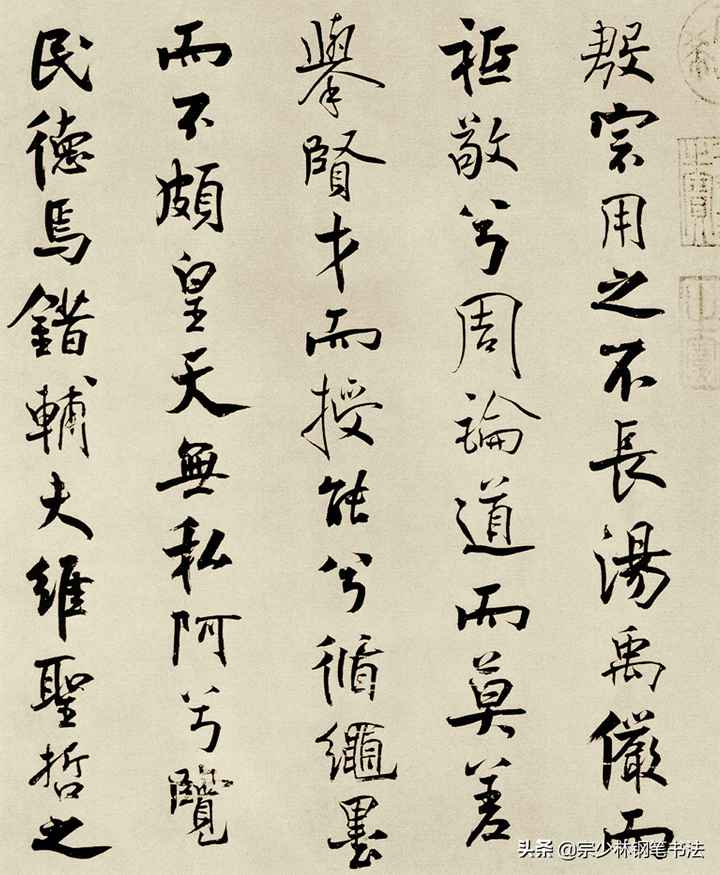 殷宗用之不長湯禹儼而
祗敬兮周論道而莫差
舉賢才而授能兮循繩墨
而不頗皇天無私阿兮覽
民德焉錯輔夫維聖哲之
头条 @宗少林钢笔书法